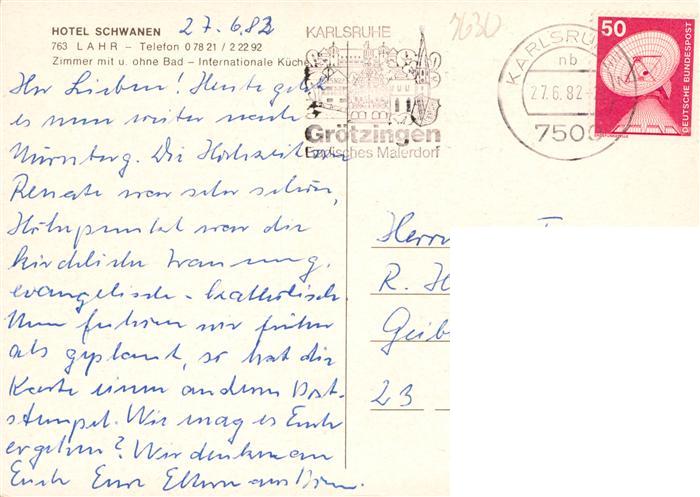 HOTEL SCHWANEN
27.6.82
763 LAHR – Telefon 0 78 21 / 2 22 92
Zimmer mit u. ohne Bad – Internationale Küche
Ihr Lieben! Heute geht
es nun weiter nach
Nürnberg. Die Hochzeit von
Renate war sehr schön,
Höhepunkt war die
kirchliche Trauung,
evangelisch-katholisch.
Nun fuhren wir früher
als geplant, so hat die
Karte einen anderen Post-
stempel. Wie mag es Euch
ergehen? Wir denken an
Euch Eure Eltern aus
7630
KARLSRUHE
Grötzingen
Badisches Malerdorf
KARLSRUHE
nb
27.6.82
7500
50
DEUTSCHE BUNDESPOST
Herrn
R. H
Geib
23